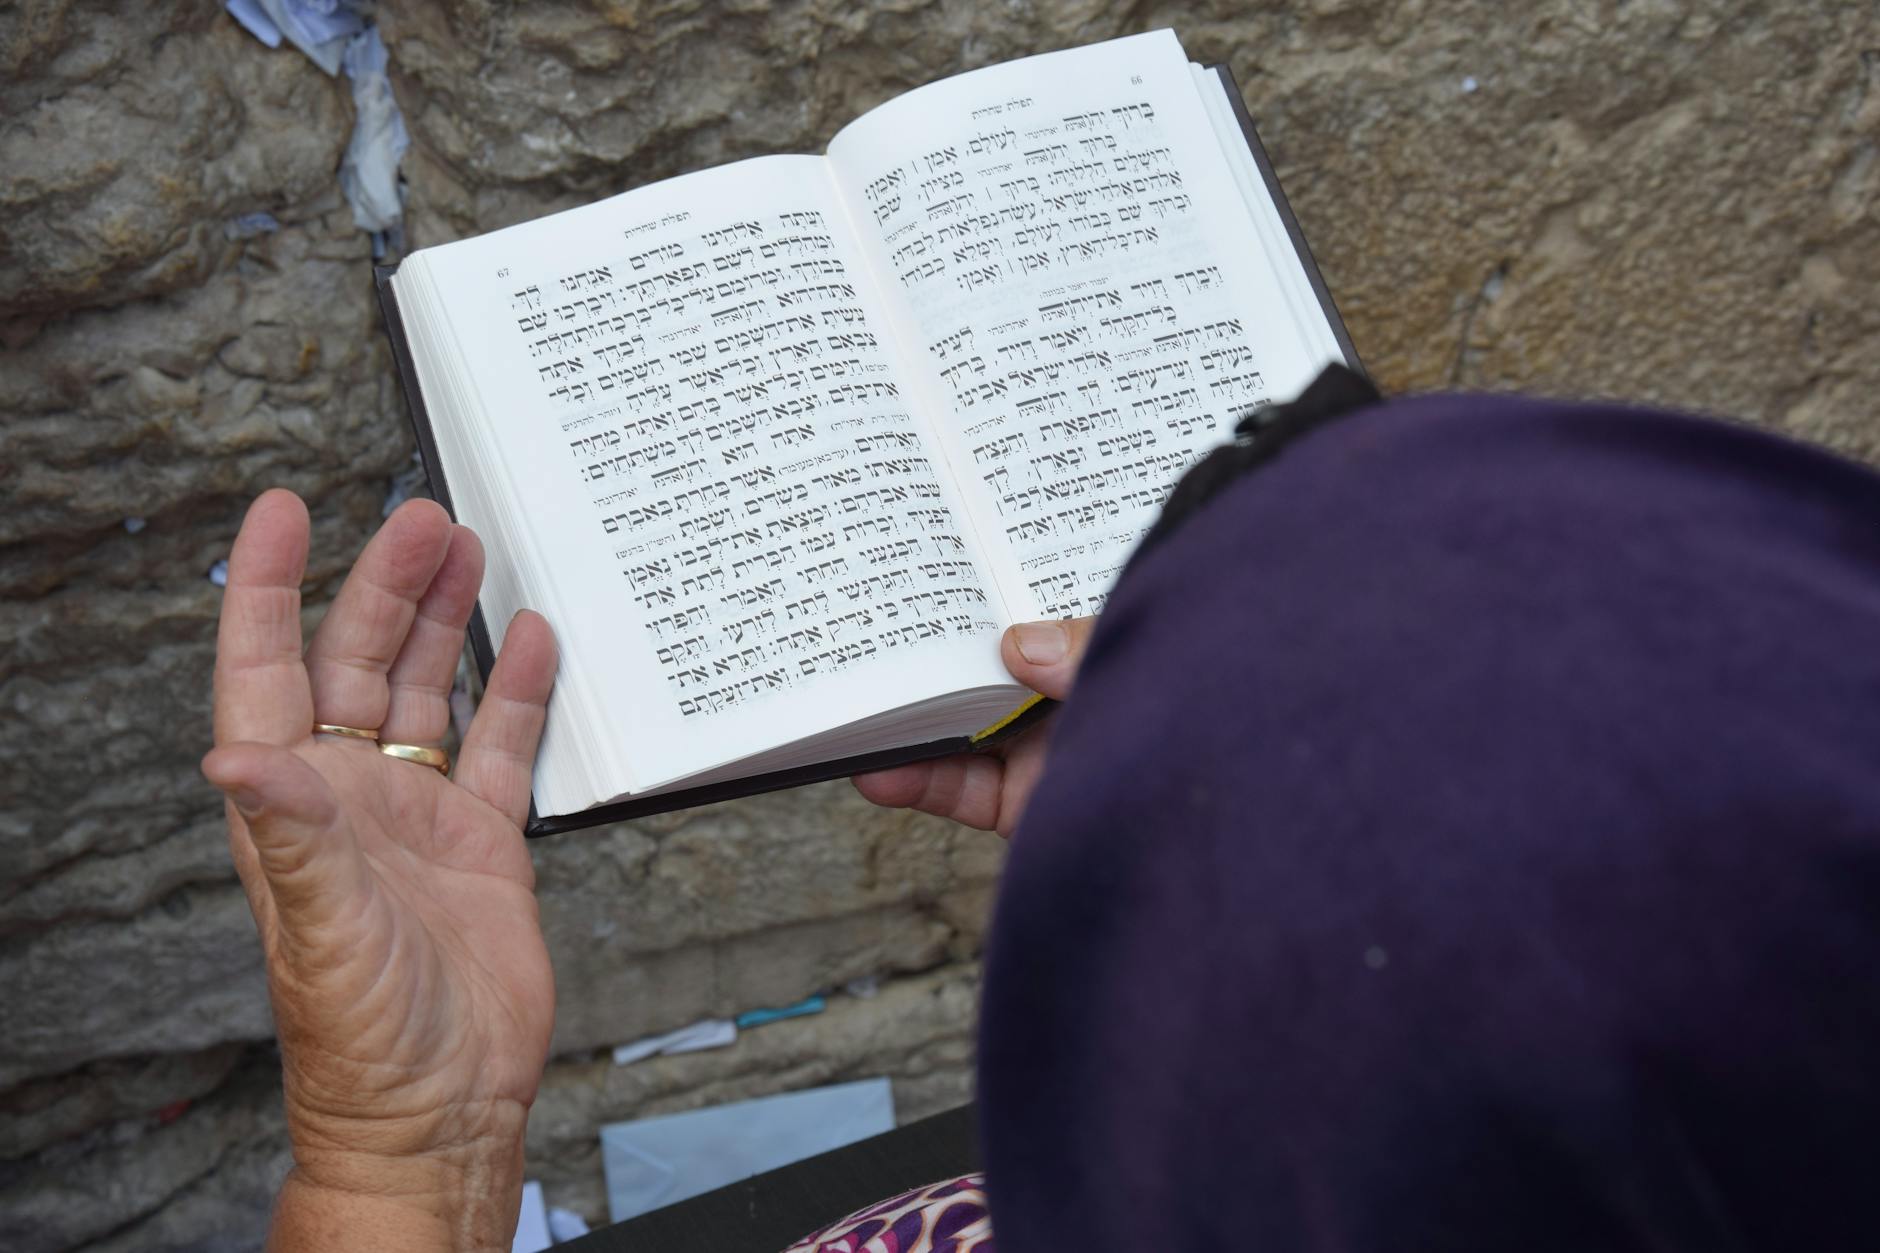 66
תפלת שחרית
בָּרוּךְ יְהֹוָה(אדני) יאהדונהי לְעוֹלָם, אָמֵן | וְאָמֵן:
בָּרוּךְ יְהֹוָה(אדני) יאהדונהי מִצִּיּוֹן, שֹׁכֵן
יְרוּשָׁלָיִם הַלְלוּיָהּ: בָּרוּךְ | יְהֹוָה(אדני) יאהדונהי
אֱלֹהִים אֱלֹהֵי יִשְׂרָאֵל, עֹשֵׂה נִפְלָאוֹת לְבַדּוֹ:
וּבָרוּךְ שֵׁם כְּבוֹדוֹ לְעוֹלָם, וְיִמָּלֵא כְבוֹדוֹ
אֶת־כָּל־הָאָרֶץ, אָמֵן | וְאָמֵן:
יעמוד ויאמר בכוונה:
וַיְבָרֶךְ דָּוִיד אֶת־יְהֹוָה(אדני) יאהדונהי לְעֵינֵי
כָּל־הַקָּהָל וַיֹּאמֶר דָּוִיד, בָּרוּךְ
אַתָּה יְהֹוָה(אדני) יאהדונהי אֱלֹהֵי יִשְׂרָאֵל אָבִינוּ,
מֵעוֹלָם וְעַד־עוֹלָם: לְךָ יְהֹוָה(אדני) יאהדונהי
הַגְּדֻלָּה וְהַגְּבוּרָה וְהַתִּפְאֶרֶת וְהַנֵּצַח
כִּי־כֹל בַּשָּׁמַיִם וּבָאָרֶץ, לְךָ
הַמַּמְלָכָה וְהַמִּתְנַשֵּׂא לְכֹל |
מִלְּפָנֶיךָ וְאַתָּה
"בכל" יתן שלש מטבעות
וּבְיָדְךָ
לַכֹּל:
67
תפלת שחרית
וְעַתָּה אֱלֹהֵינוּ מוֹדִים אֲנַחְנוּ לָךְ
וּמְהַלְלִים לְשֵׁם תִּפְאַרְתֶּךָ: וִיבָרְכוּ שֵׁם
כְּבוֹדֶךָ, וּמְרוֹמַם עַל־כָּל־בְּרָכָה וּתְהִלָּה:
אַתָּה־הוּא יְהֹוָה(אדני) יאהדונהי לְבַדֶּךָ אַתָּה
עָשִׂיתָ אֶת־הַשָּׁמַיִם שְׁמֵי הַשָּׁמַיִם וְכָל־
צְבָאָם הָאָרֶץ וְכָל־אֲשֶׁר עָלֶיהָ
הַיַּמִּים וְכָל־אֲשֶׁר בָּהֶם וְאַתָּה מְחַיֶּה
אֶת־כֻּלָּם, וּצְבָא הַשָּׁמַיִם לְךָ מִשְׁתַּחֲוִים:
אַתָּה הוּא יְהֹוָה(אדני) יאהדונהי
הָאֱלֹהִים, (עד כאן מעומד) אֲשֶׁר בָּחַרְתָּ בְּאַבְרָם
וְהוֹצֵאתוֹ מֵאוּר כַּשְׂדִּים, וְשַׂמְתָּ
שְּׁמוֹ אַבְרָהָם: וּמָצָאתָ אֶת־לְבָבוֹ נֶאֱמָן
לְפָנֶיךָ, וְכָרוֹת עִמּוֹ הַבְּרִית לָתֵת אֶת־
אֶרֶץ הַכְּנַעֲנִי הַחִתִּי הָאֱמֹרִי וְהַפְּרִזִּי
וְהַיְבוּסִי וְהַגִּרְגָּשִׁי לָתֵת לְזַרְעוֹ, וַתָּקֶם
אֶת־דְּבָרֶיךָ כִּי צַדִּיק אָתָּה: וַתֵּרֶא אֶת־
עֳנִי אֲבֹתֵינוּ בְּמִצְרָיִם, וְאֶת־זַעֲקָתָם